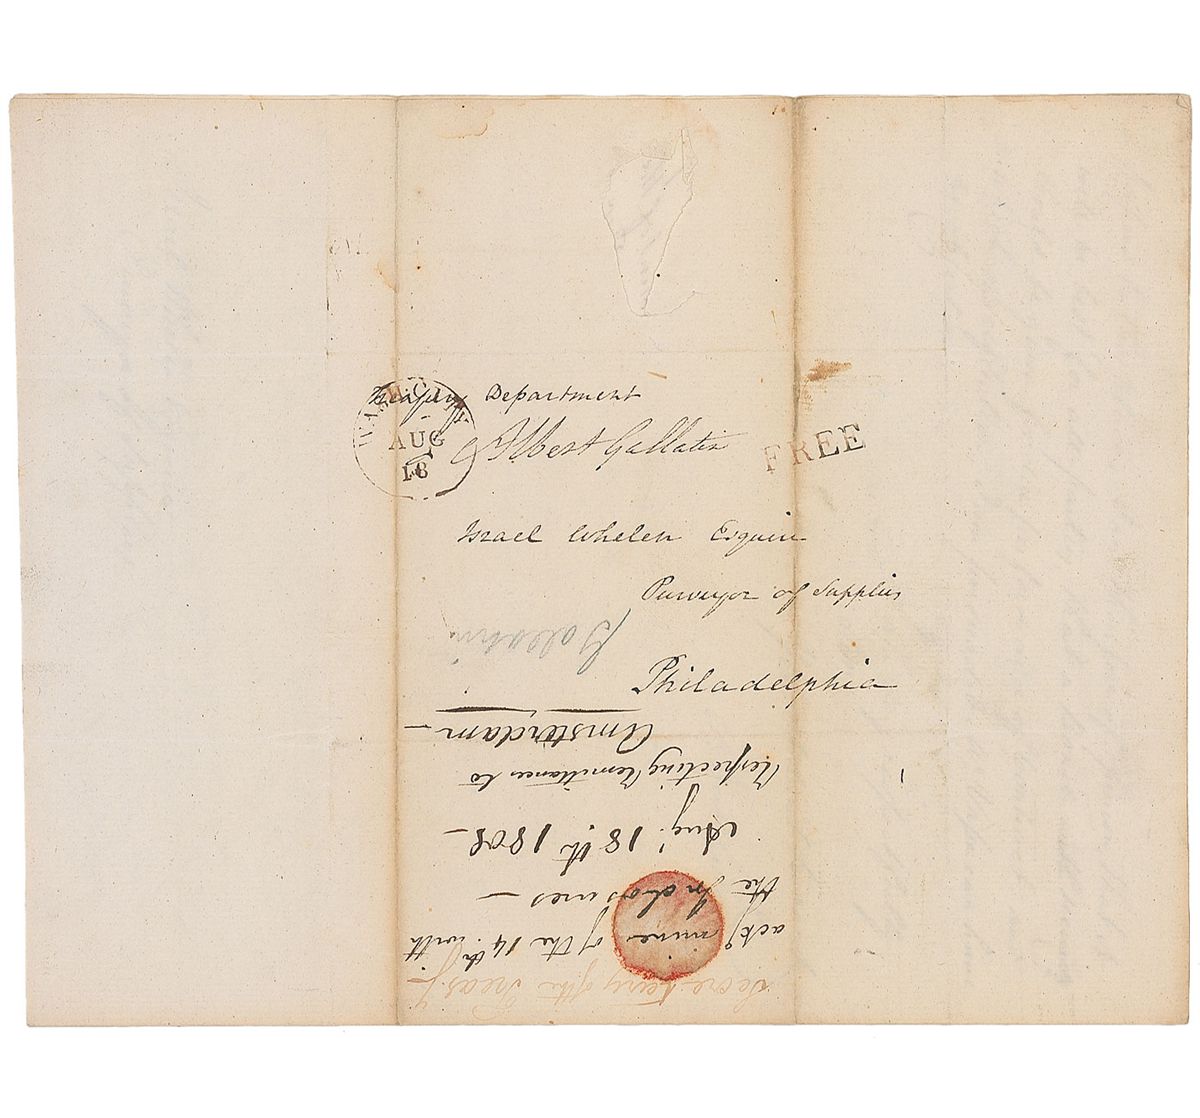 Treasury Department
WASH. CITY
AUG
18
Albert Gallatin
FREE
Israel Whelen Esquire
Purveyor of Supplies
Philadelphia
Gallatin
Secretary of the Treasy
ackg mine of the 14th with
the Inclosures —
Augt 18th 1801 —
Respecting Remittances to
Amsterdam —